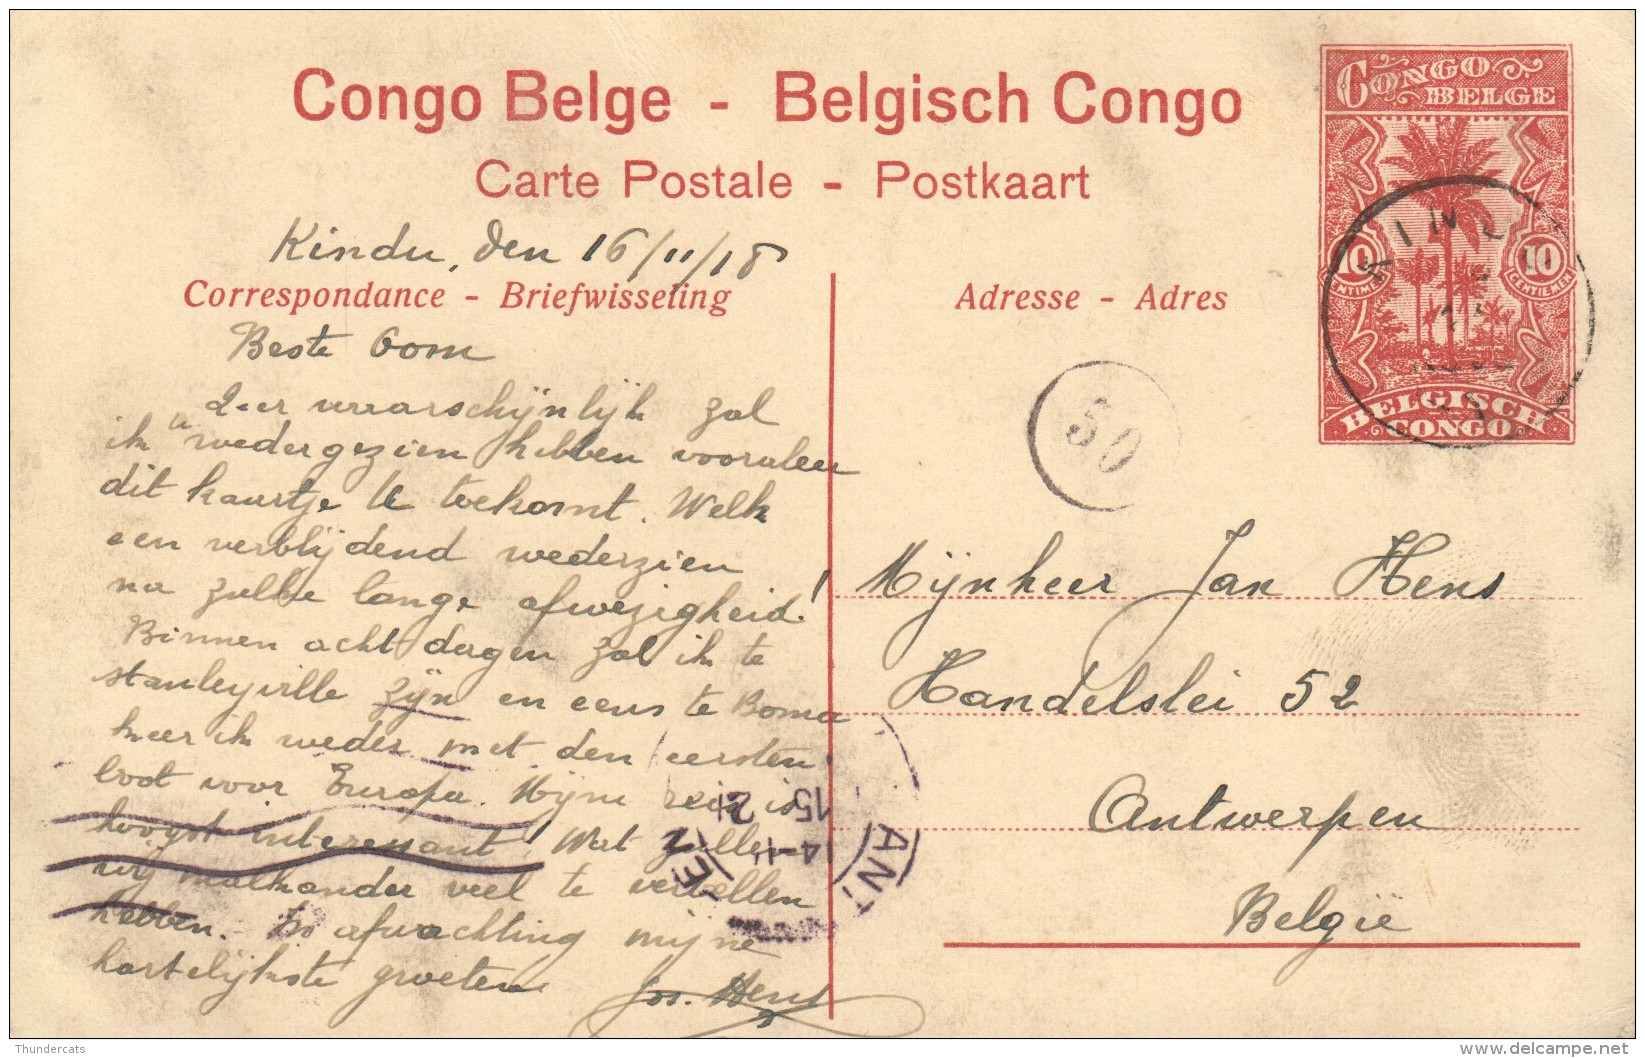 Congo Belge - Belgisch Congo
Carte Postale - Postkaart
CONGO
BELGE
10
10
CENTIEMEN
BELGISCH
CONGO
Kindu, den 16/11/18
Correspondance - Briefwisseling
Adresse - Adres
Beste Oom
Zeer waarschijnlijk zal
ik u wedergezien hebben vooraleer
dit kaartje U toekomt. Welk
een verblijdend wederzien
na zulke lange afwezigheid!
Binnen acht dagen zal ik te
Stanleyville zijn en eens te Boma
keer ik weder met den eersten
boot voor Europa. Mijne reis is
hoogst interessant. Wat zullen
wij malkander veel te vertellen
hebben. In afwachting mijne
hartelijkste groeten
Jos. Hens
50
Mijnheer Jan Hens
Handelslei 52
Antwerpen
België
KIN
ANT
15
Thundercats
delcampe.net